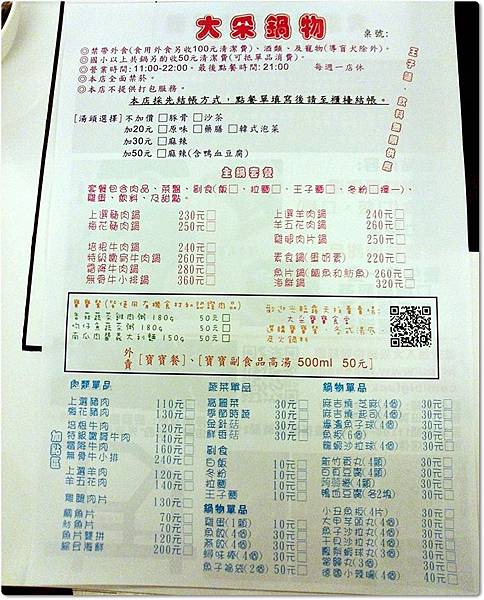 大呆鍋物
桌號:
◎禁帶外食(食用外食另收100元清潔費)、酒類、及寵物(導盲犬除外)。
◎國小以上共鍋另酌收50元清潔費(可抵單品消費)。
◎營業時間:11:00-22:00。最後點餐時間:21:00 每週一店休
◎本店全面禁菸。
◎本店不提供打包服務。
本店採先結帳方式,點餐單填寫後請至櫃檯結帳。
王子麵、飲料無限供應
[湯頭選擇]不加價□豚骨□沙茶
加20元□原味□藥膳□韓式泡菜
加30元□麻辣
加50元□麻辣(含鴨血豆腐)
主鍋套餐
套餐包含肉品、菜盤、副食(飯□、拉麵□、王子麵□、冬粉□擇一)、
雞蛋、飲料、及甜點。
上選豬肉鍋 230元□
梅花豬肉鍋 250元□
培根牛肉鍋 240元□
特級嫩肩牛肉鍋 260元□
霜降牛肉鍋 280元□
無骨牛小排鍋 360元□
上選羊肉鍋 240元□
羊五花肉鍋 260元□
雞腿肉片鍋 250元□
素食鍋(蛋奶素) 220元□
魚片鍋(鯛魚和魴魚) 260元□
海鮮鍋 320元□
香菇蔬菜雞肉粥 180g 50元□
吻仔魚蔬菜粥 180g 50元□
南瓜肉醬義大利麵 150g 50元□
大呆寶寶食堂
及火鍋料
外賣[寶寶餐]、[寶寶副食品高湯 500ml 50元]
肉類單品
加購區
上選豬肉 110元□
梅花豬肉 130元□
培根牛肉 120元□
特級嫩肩牛肉 140元□
霜降牛肉 160元□
無骨牛小排 240元□
上選羊肉 120元□
羊五花肉 140元□
雞腿肉片 130元□
鯛魚片 70元□
魴魚片 70元□
魚片雙拼 120元□
綜合海鮮 200元□
蔬菜單品
高麗菜 30元□
季節時蔬 30元□
金針菇 30元□
鮮香菇 30元□
副食
白飯 10元□
冬粉 10元□
拉麵 10元□
王子麵 10元□
鍋物單品
雞蛋(1顆) 10元□
燕餃(4個) 30元□
蟳味棒(4個) 30元□
魚子福袋(2個) 50元□
鍋物單品
麻吉燒-芝麻(4個) 30元□
麻吉燒-起司(4個) 30元□
爆漿魚子球(4個) 30元□
魚板(6個) 30元□
龍蝦沙拉球(4個) 30元□
新竹貢丸(4顆) 30元□
百頁豆腐(4顆) 30元□
蒟蒻絲(4個) 30元□
鴨血豆腐(各2塊) 30元□
小丑魚板(4片) 30元□
大甲芋頭丸(4個) 30元□
魚子沙拉丸(4個) 30元□
干貝沙拉丸(4個) 30元□
鳳梨蝦球(3個) 30元□
德國小辣腸(4個) 40元□